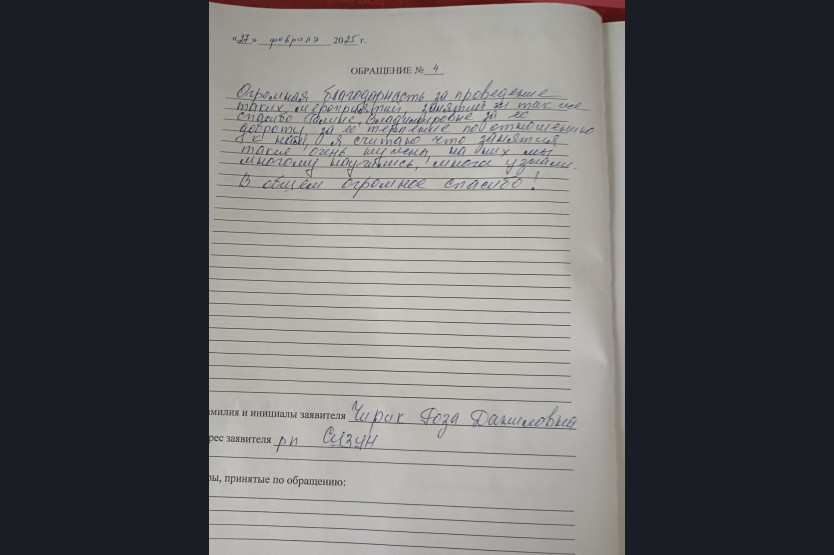 «27» февраля 2025 г.
ОБРАЩЕНИЕ № 4
Огромная благодарность за проведение
таких мероприятий, занятий и так же
спасибо Галине Владимировне за её
доброту, за её терпение по отношению
к нам, я считаю что занятия
такие очень нужны, на них мы
многому научились, много узнали.
В общем огромное спасибо!
амилия и инициалы заявителя Чирик Роза Даниловна
рес заявителя рп Сузун
ры, принятые по обращению: